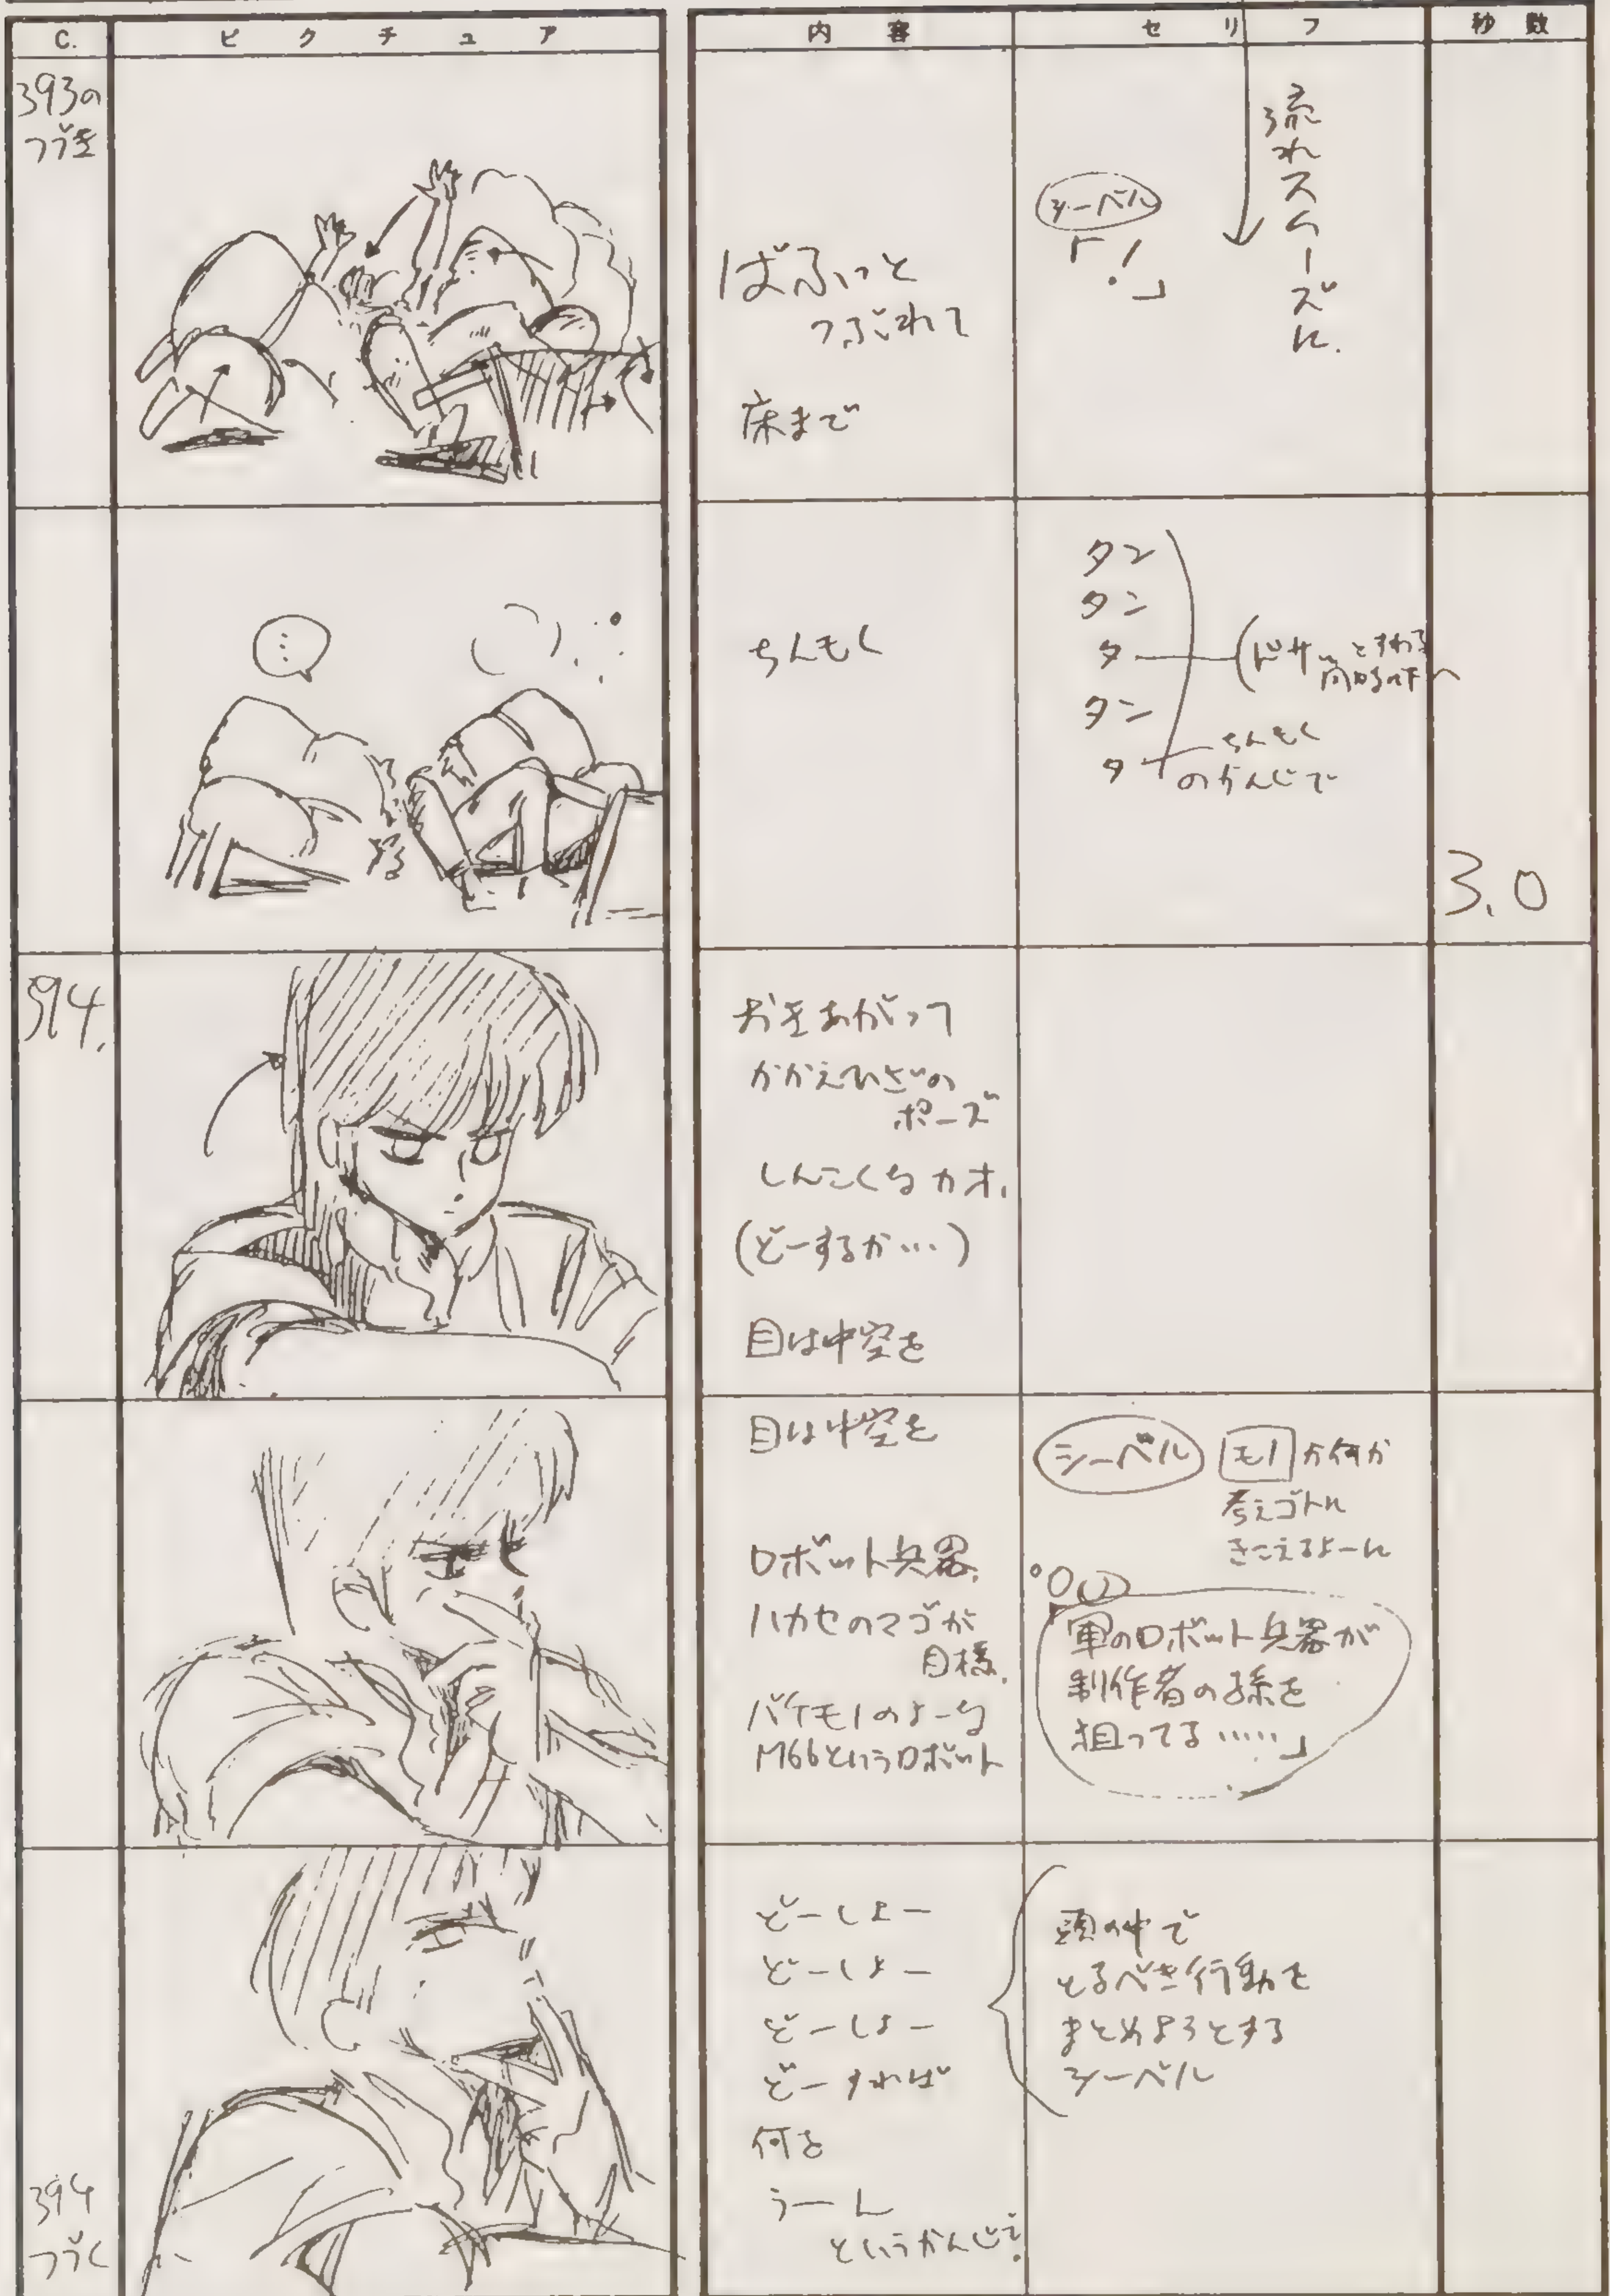 C.
ピクチュア
内容
セリフ
秒数
393の
つづき
ばふっと
つぶれて
床まで
シーベル
「!」
流れスムーズに.
ちんもく
タン
タン
タ
タン
タ
(ドサッとすわる
ちんもく
のかんじで
3.0
394.
おきあがって
かかえひざの
ポーズ
しんこくなカオ.
(どーするか…)
目は中空を
目は中空を
ロボット兵器.
ハカセのマゴが
目標.
バケモノのよーな
M66というロボット
シーベル
モノか何か
考えゴトに
きこえるよーに
「軍のロボット兵器が
制作者の孫を
狙ってる……」
どーしよー
どーしよー
どーしよー
どーすれば
何を
うーん
というかんじで.
頭の中で
とるべき行動を
まとめようとする
シーベル
394
つづく